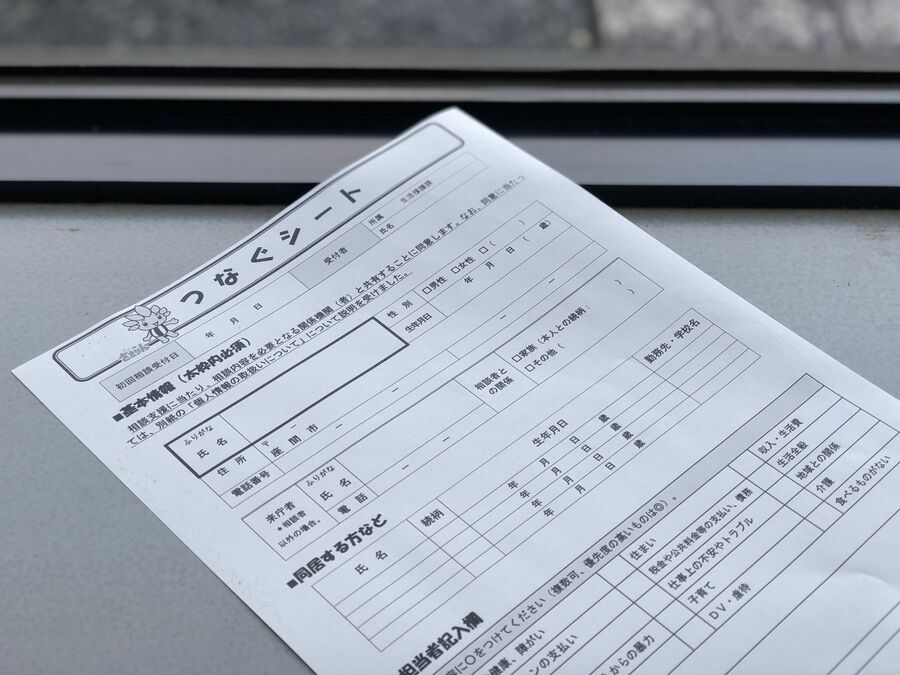 つなぐシート
初回相談受付日 年 月 日 受付者 所属 生活援護課
氏名
■基本情報（太枠内必須）
相談支援に当たり、相談内容を必要となる関係機関（者）と共有することに同意します。なお、同意に当たっ
ては、別紙の「個人情報の取扱いについて」について説明を受けました。
ふりがな
氏 名
性 別 □男性 □女性 □（ ）
生年月日 年 月 日（ 歳）
住 所 〒 －
座 間 市
電話番号 － － － －
来庁者
＊相談者
以外の場合。
ふりがな
氏 名
電 話 － －
相談者と
の関係
□家族（本人との続柄： ）
□その他（ ）
■同居する方など
氏 名 続柄 生年月日 勤務先・学校名
年 月 日 歳
年 月 日 歳
年 月 日 歳
担当者記入欄
に○をつけてください（複数可、優先度の高いものは◎）。
健康、障がい 住まい 収入・生活費
ンの支払い 税金や公共料金等の支払い、債務 生活全般
仕事上の不安やトラブル 地域との関係
からの暴力 子育て 介護
DV・虐待 食べるものがない